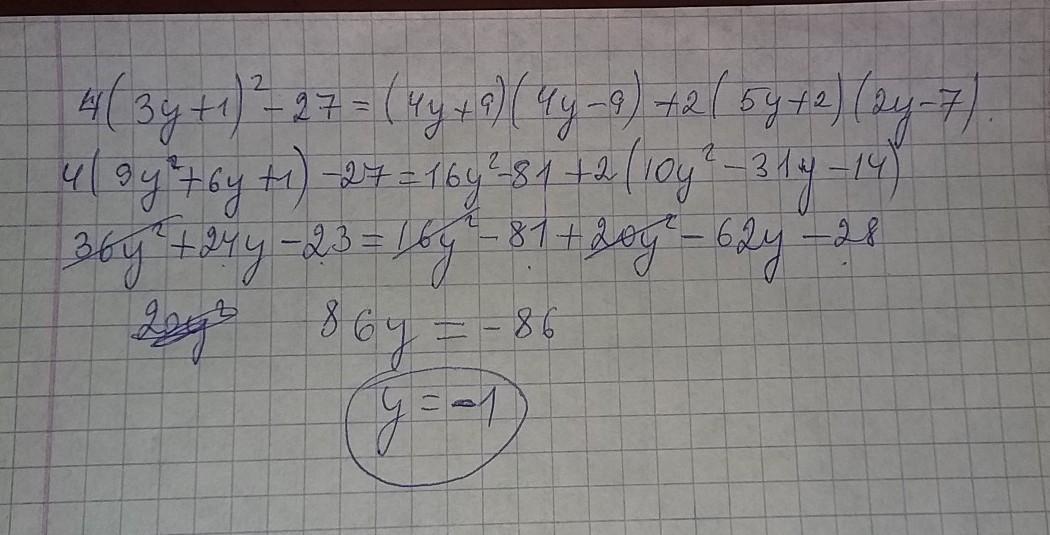 4(3y+1)²-27=(4y+9)(4y-9)+2(5y+2)(2y-7).
4(9y²+6y+1)-27=16y²-81+2(10y²-31y-14)
36y²+24y-23=16y²-81+20y²-62y-28
20y² 86y=-86
y=-1